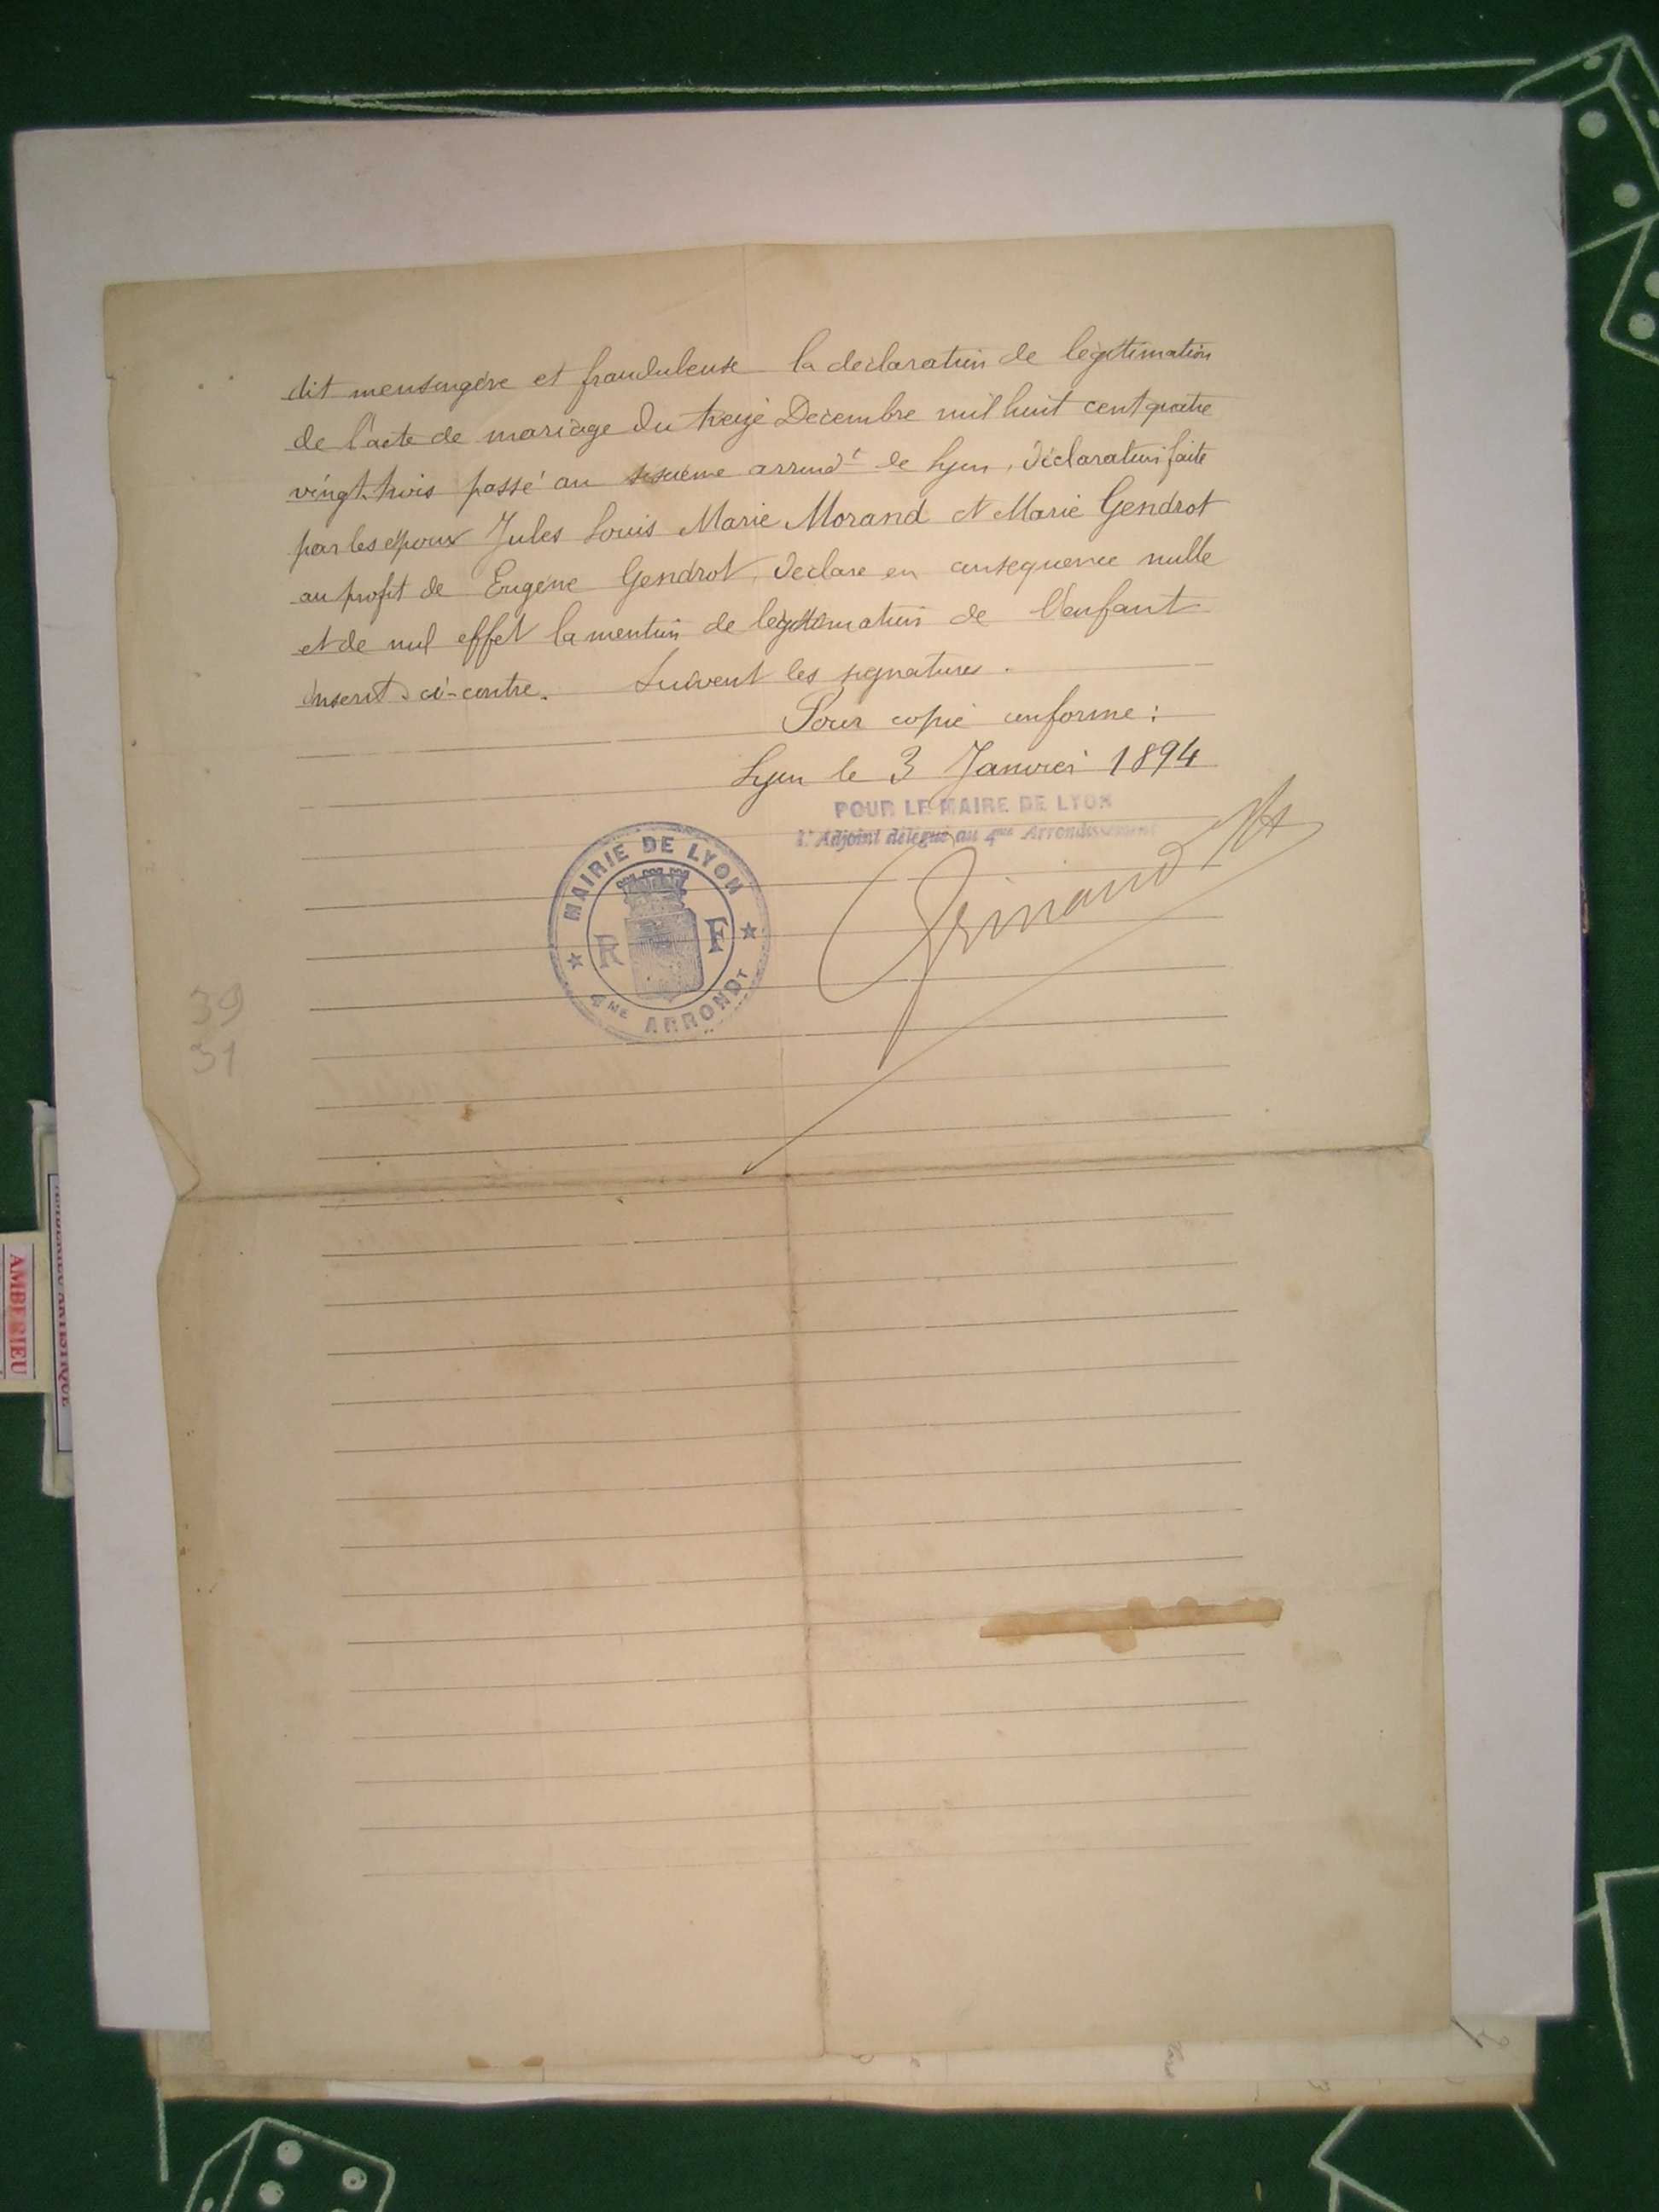 dit mensongère et frauduleuse la déclaration de légitimation
de l'acte de mariage du treize Décembre mil huit cent quatre
vingt trois passé au sixième arrondt de Lyon, déclaration faite
par les époux Jules Louis Marie Morand et Marie Gendrot
au profit de Eugène Gendrot, déclare en conséquence nulle
et de nul effet la mention de légitimation de l'enfant
inscrit ci-contre. Suivent les signatures.
Pour copie conforme :
Lyon le 3 Janvier 1894
POUR LE MAIRE DE LYON
L'Adjoint délégué au 4me Arrondissement
MAIRIE DE LYON
R F
4ME ARRONDT
39
31
AMBERIEU